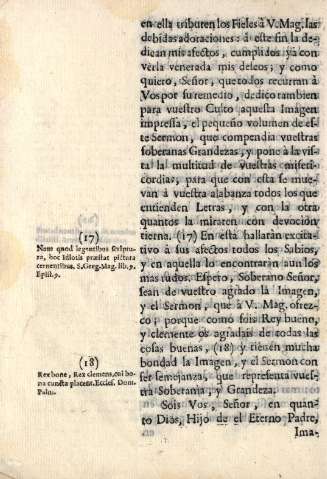 en ella tributen los Fieles à V. Mag. las
debidas adoraciones: à este fin la de-
dican mis afectos, cumplidos ya con
verla venerada mis deseos; y como
quiero, Señor, que todos recurran à
Vos por su remedio, dedico tambien
para vuestro Culto aquesta Imagen
impressa, el pequeño volumen de es-
te Sermon, que compendia vuestras
soberanas Grandezas, y pone à la vis-
ta la multitud de vuestras miseri-
cordias, para que con esta se mue-
van à vuestra alabanza todos los que
entienden Letras, y con la otra
quantos la miraren con devoción
tierna. (17) En està hallaràn excita-
tivo à sus afectos todos los Sabios,
y en aquella lo encontraràn aun los
mas rudos. Espero, Soberano Señor,
sean de vuestro agrado la Imagen,
y el Sermon, que à V. Mag. ofrez-
co; porque como sois Rey bueno,
y clemente os agradais de todas las
cosas buenas, (18) y tienen mucha
bondad la Imagen, y el Sermon con
ser semejanza, que representa vues-
tra Soberania, y Grandeza.
Sois Vos, Señor, en quan-
to Dios, Hijo de el Eterno Padre,
Ima-
(17)
Nam quod legentibus scriptu-
ra, hoc Idiotis præstat pictura
cernentibus. S. Greg. Mag. lib. 9.
Epist. 9.
(18)
Rex bone, Rex clemens, cui bo-
na cuncta placent. Eccles. Dom.
Palm.